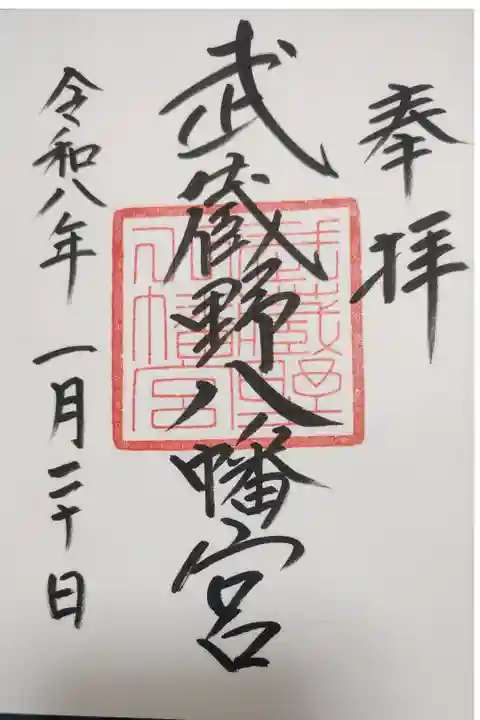 奉拝
武蔵野八幡宮
武蔵野
八幡宮
令和八年一月二十日